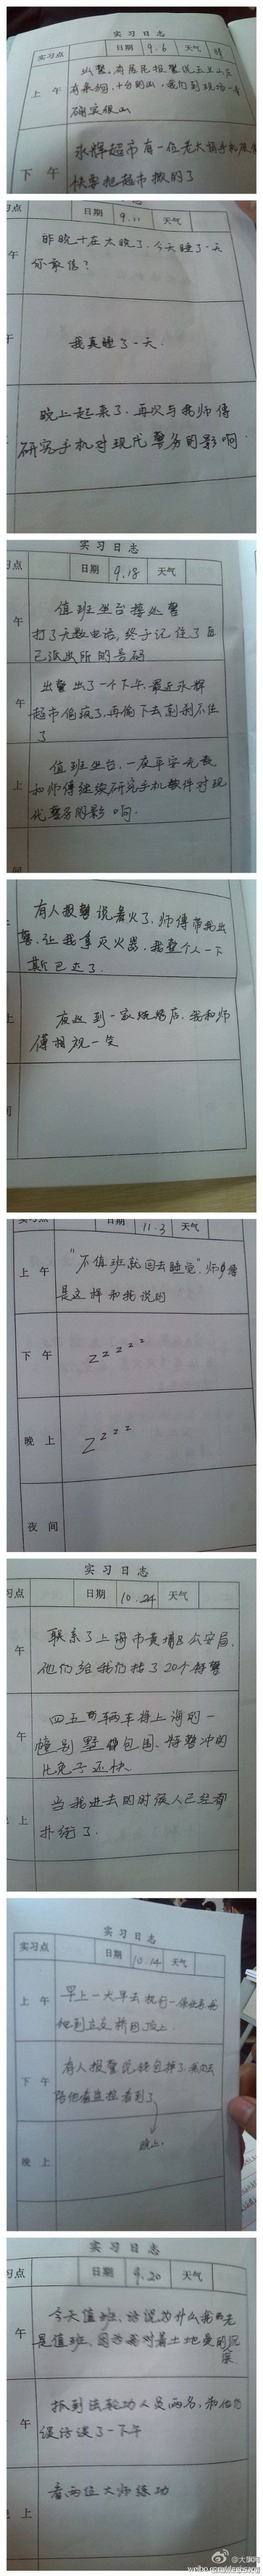 实习日志
实习点 日期 9.6 天气 晴
上午
出警，有居民报警说五里山庄
有条狗，十分凶，我们到现场一看
确实很凶
下午
永辉超市有一位老太 手机
快要把超市掀的了
习点 日期 9.11 天气
午
昨晚卄在太晚了，今天睡了一天
你敢信？
午
我真睡了一天．
晚上起来了，再次与我师傅
研究手机对现代警务的影响．
实习日志
习点 日期 9.18 天气
午
值班坐台接处警
打了无数电话，终于记住了自
己派出所的号码
午
出警出了一个下午，最近永辉
超市偷疯了，再偷下去刹不住
了
上
值班坐台，一夜平安无表
和师傅继续研究手机软件对现
代警务的影响．
间
有人报警说着火了，师傅带我出
警，让我拿灭火器，我整个人一下
斯巴达了．
上
夜巡到一家烧烤店，我和师
傅相视一笑
间
实习点 日期 11.3 天气
上午
“不值班就回去睡觉”，师傅
是这样和我说的
下午
zzzzz
晚上
zzzz
夜间
实习日志
习点 日期 10.24 天气
午
联系了上海市黄埔区公安局，
他们给我们拨了20个特警
午
四五辆车将上海的一
幢别墅包围，特警冲的
比兔子还快
上
当我进去的时候人已经都
扑街了．
实习日志
实习点 日期 10.14 天气
上午
早上一大早去执行一保
到立交桥
下午
有人报警说钱包掉了，
陪他看监控看到了
晚上．
晚上
实习日志
习点 日期 9.20 天气
午
今天值班，话说为什么我老
是值班，因为我对着土地爱的深
层
午
抓到法轮功人员两名，和他们
谈话谈了一下午
上
看两位大师练功
@大旗网
weibo.com/daqiwang